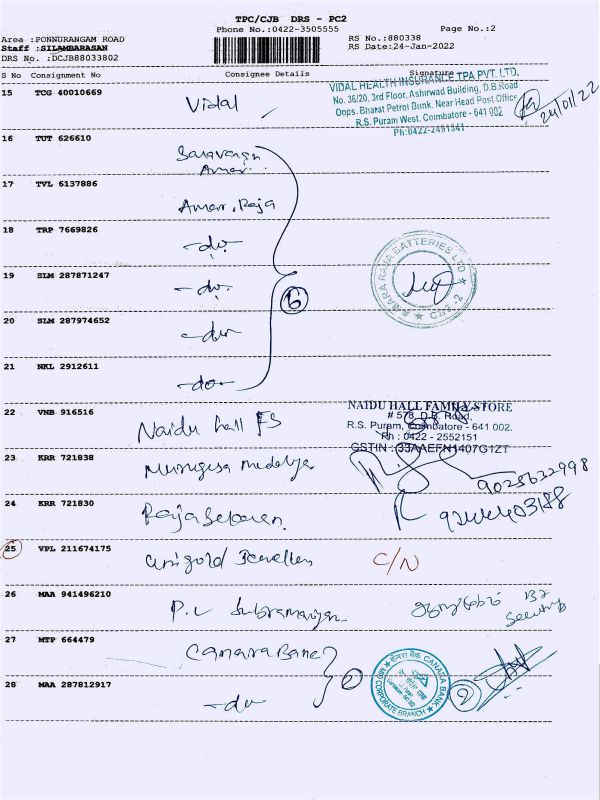 TPC/CJB DRS - PC2
Phone No.:0422-3505555
Page No.:2
Area :PONNURANGAM ROAD
Staff :SILAMBARASAN
DRS No. :DCJB88033802
RS No.:880338
RS Date:24-Jan-2022
S No Consignment No Consignee Details Signature
15 TCG 40010669 Vidal
VIDAL HEALTH INSURANCE TPA PVT. LTD.
No. 36/20, 3rd Floor, Ashirwad Building, D.B.Road
Oops. Bharat Petrol Bunk, Near Head Post Office
R.S. Puram West, Coimbatore - 641 002
Ph:0422-2451341
24/01/22
16 TUT 626610 Saravanan
Amar
17 TVL 6137886 Amar, Raja
18 TRP 7669826 -do-
19 SLM 287871247 -do-
20 SLM 287974652 -do-
21 NKL 2912611 -do-
6
AMARA RAJA BATTERIES LTD
CBE-2
22 VNB 916516 Naidu hall FS
NAIDU HALL FAMILY STORE
# 578, D.B. Road,
R.S. Puram, Coimbatore - 641 002.
Ph : 0422 - 2552151
GSTIN : 33AAEFN1407G1ZT
23 KRR 721838 Murugesa
9028632998
24 KRR 721830 Rajasekaran
25 VPL 211674175 Unigold Jewellers C/N
26 MAA 941496210 P.L Subramaniyan
Security
27 MTP 664479 Canara Bank
28 MAA 287812917 -do-
2
केनरा बैंक CANARA BANK
MID CORPORATE BRANCH
2